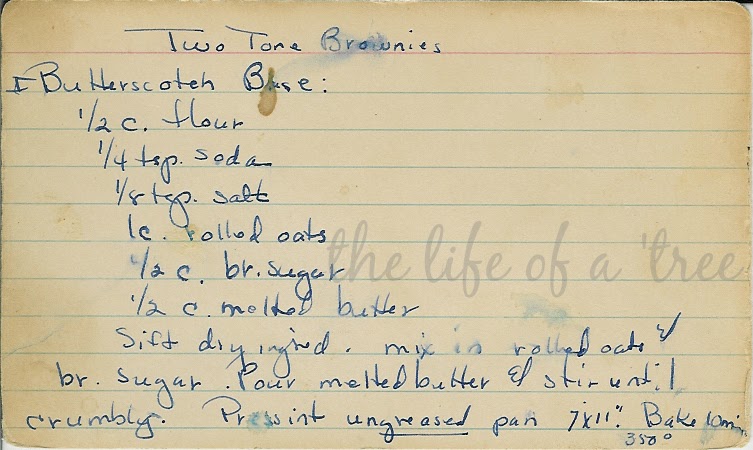 Two Tone Brownies
I Butterscotch Base:
1/2 c. flour
1/4 tsp. soda
1/8 tsp. salt
1c. rolled oats
1/2 c. br. sugar
1/2 c. melted butter
Sift dry ingred. mix in rolled oats &
br. sugar. Pour melted butter & stir until
crumbly. Press int ungreased pan 7x11". Bake 10 min.
350°
the life of a 'tree